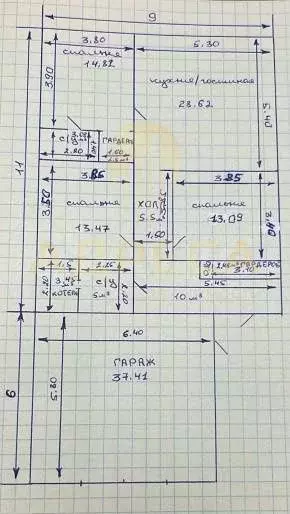 9
3.80
5.30
спальня
14.82
кухня/гостиная
28.62
3.90
5.40
11
с/у
2.20
ГАРДЕР
1.60
3.85
3.85
спальня
13.47
3.50
ХОЛЛ
5.5
1.50
спальня
13.09
3.40
ГАРДЕРОБ
3.10
5.45
10 м²
1.5
2.25
2.20
3.45
КОТЕЛ
с/у
5м²
2.20
6.40
ГАРАЖ
37.41
6
5.80